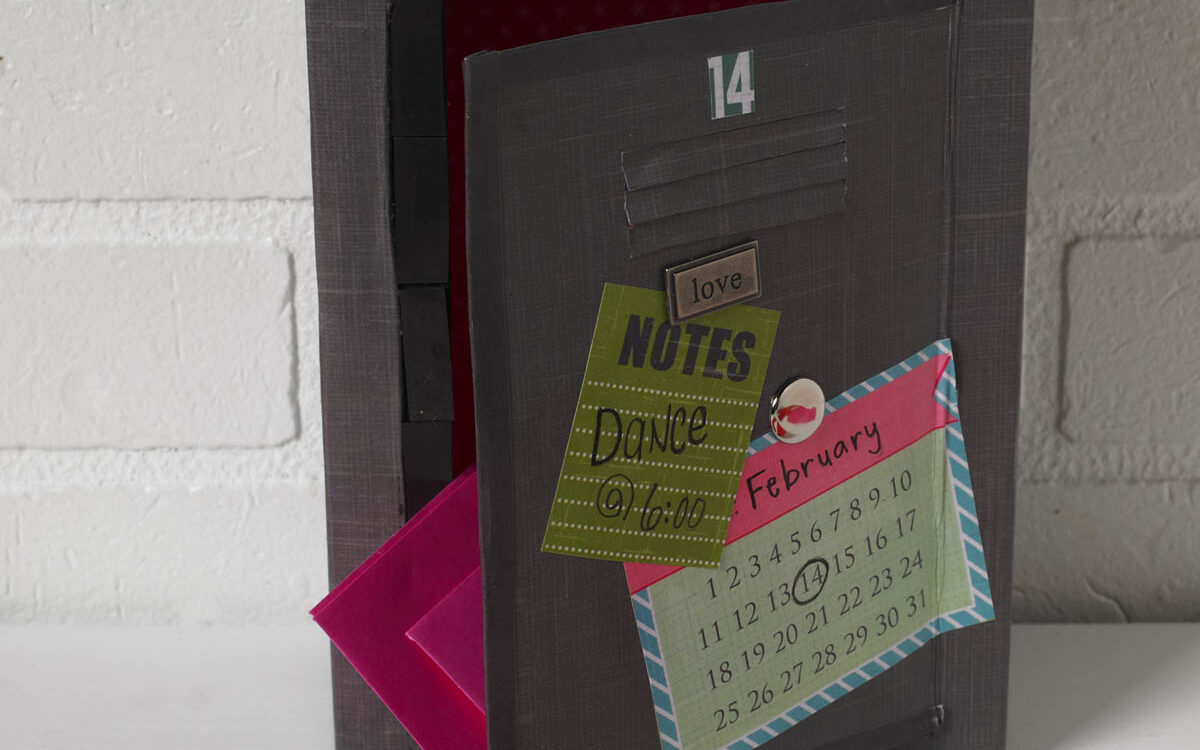 14
love
NOTES
Dance
@ 6:00
February
1 2 3 4 5 6 7 8 9 10
11 12 13 14 15 16 17
18 19 20 21 22 23 24
25 26 27 28 29 30 31